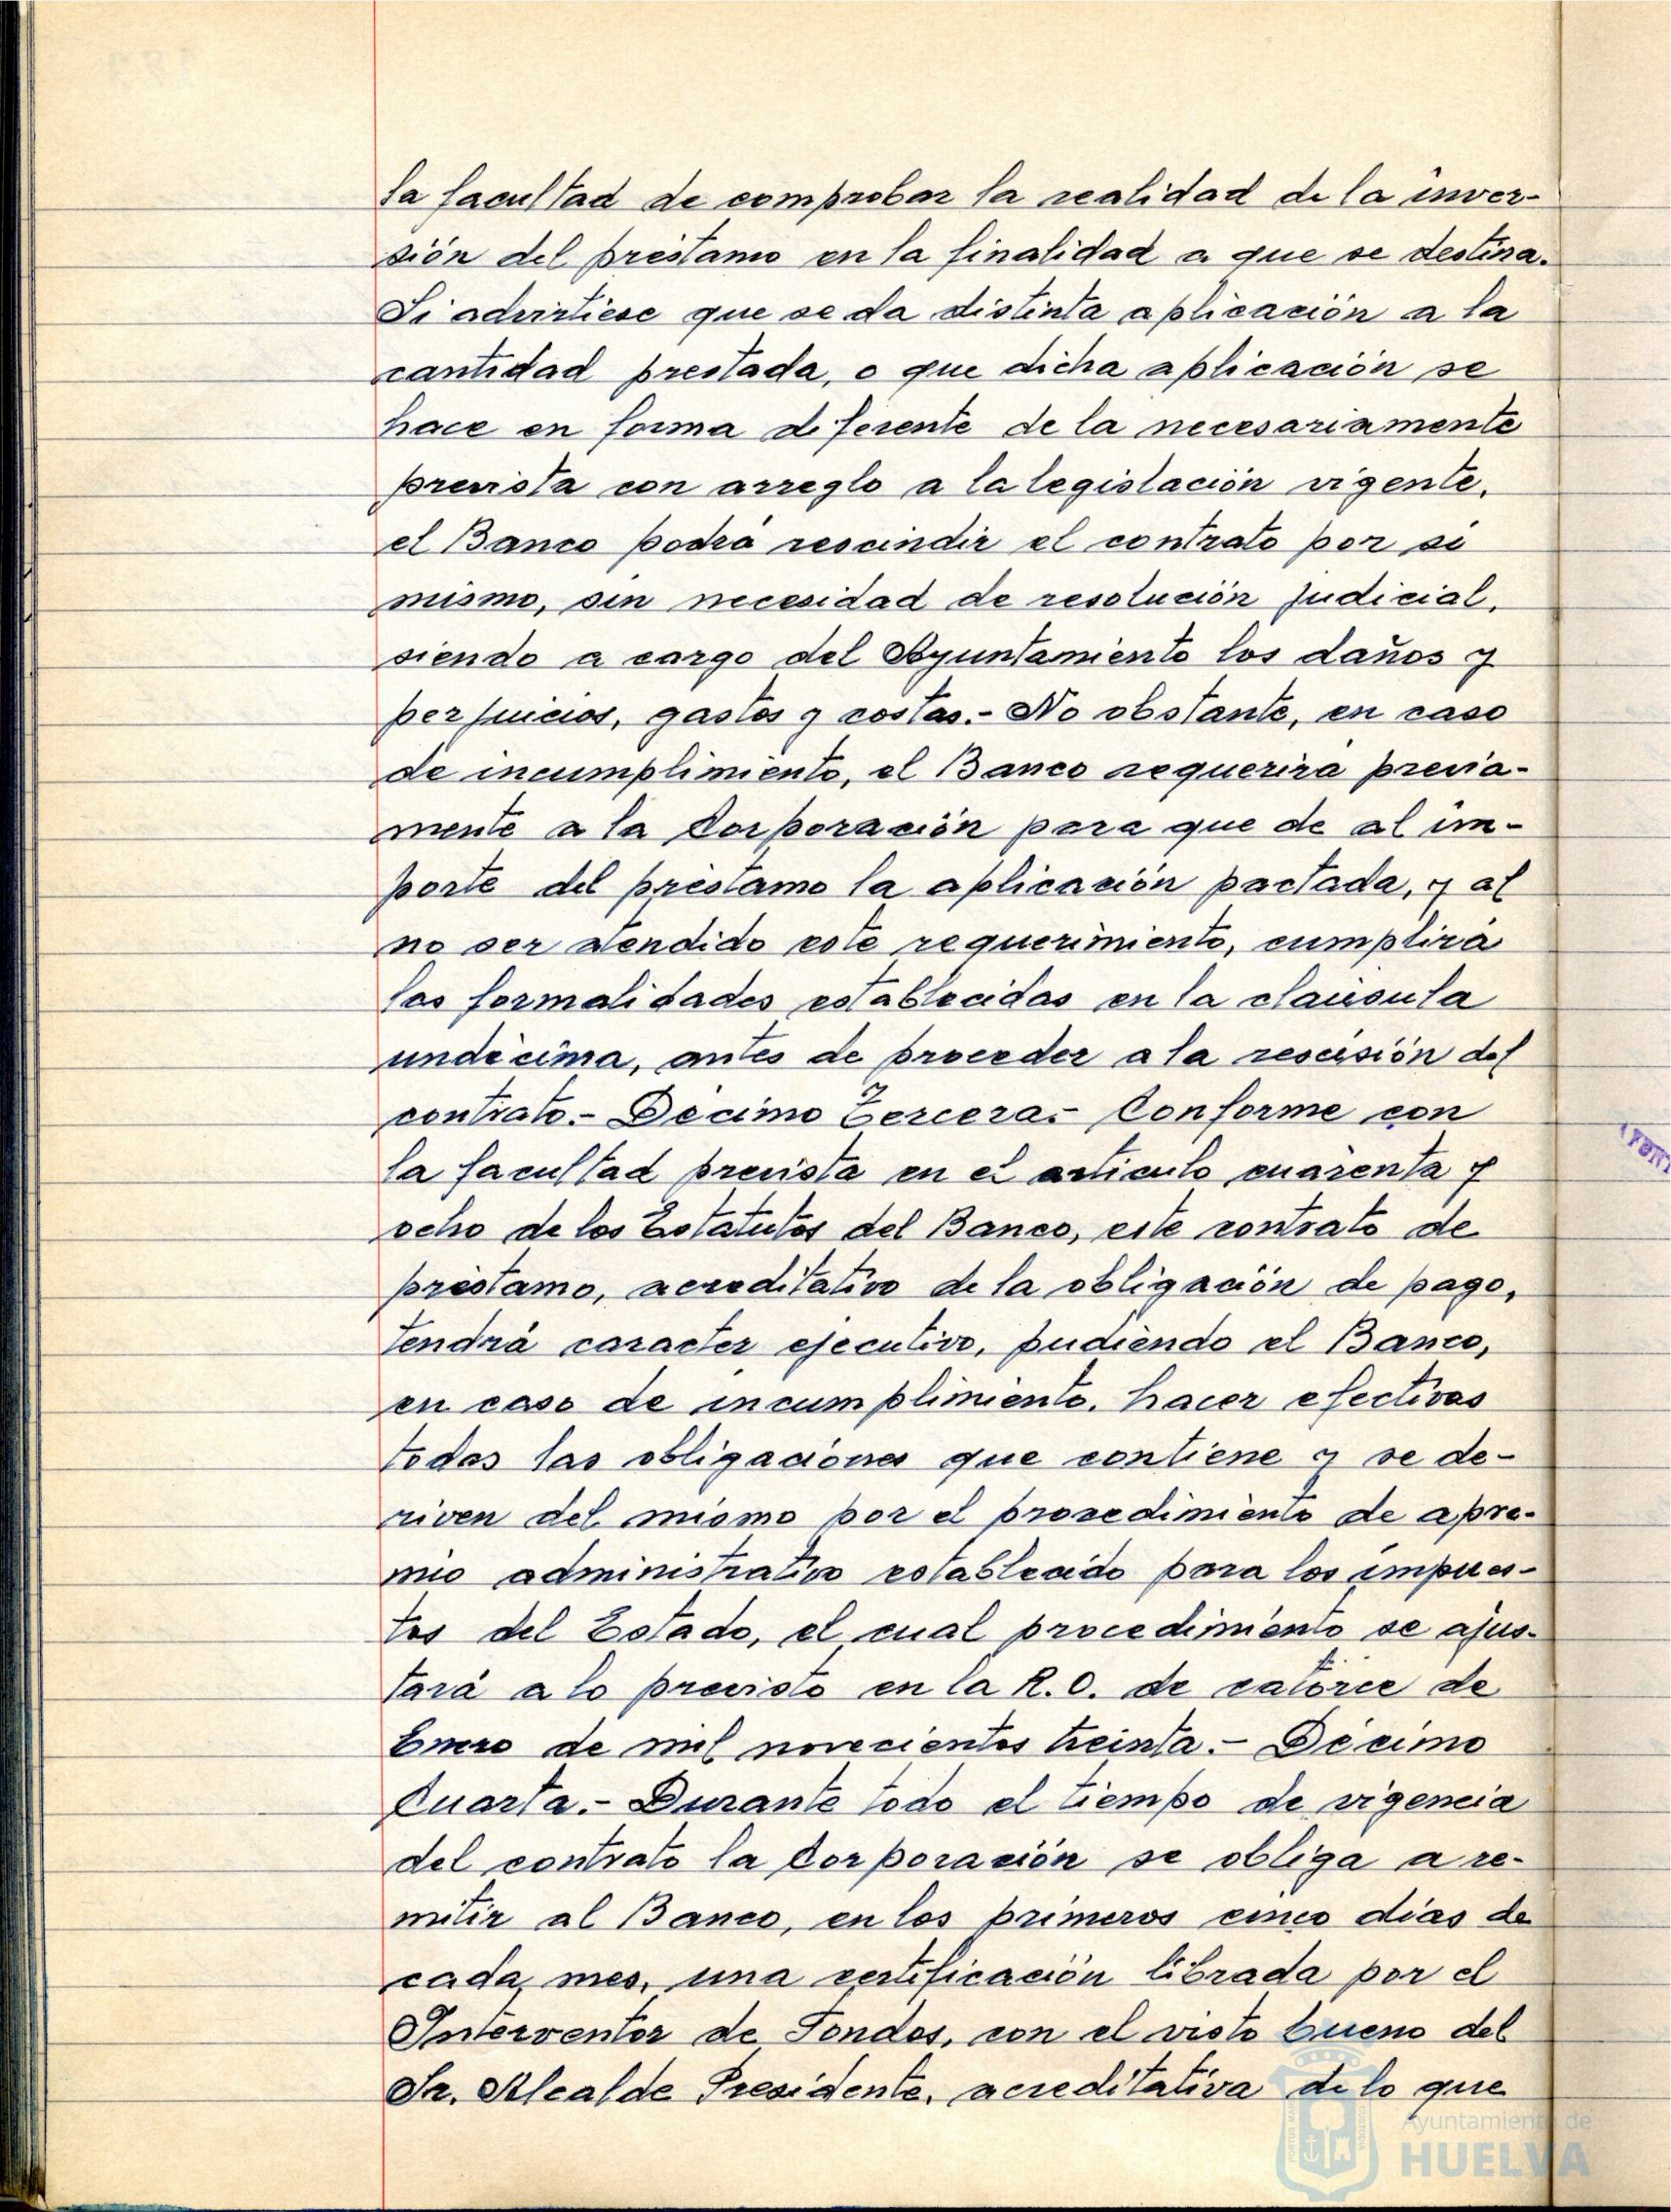 la facultad de comprobar la realidad de la inver-
sión del préstamo en la finalidad a que se destina.
Si advirtiese que se da distinta aplicación a la
cantidad prestada, o que dicha aplicación se
hace en forma diferente de la necesariamente
prevista con arreglo a la legislación vigente,
el Banco podrá rescindir el contrato por sí
mismo, sin necesidad de resolución judicial,
siendo a cargo del Ayuntamiento los daños y
perjuicios, gastos y costas.- No obstante, en caso
de incumplimiento, el Banco requerirá previa-
mente a la Corporación para que de al im-
porte del préstamo la aplicación pactada, y al
no ser atendido este requerimiento, cumplirá
las formalidades establecidas en la cláusula
undécima, antes de proceder a la rescisión del
contrato.- Décimo Tercera.- Conforme con
la facultad prevista en el artículo cuarenta y
ocho de los Estatutos del Banco, este contrato de
préstamo, acreditativo de la obligación de pago,
tendrá caracter ejecutivo, pudiendo el Banco,
en caso de incumplimiento, hacer efectivas
todas las obligaciones que contiene y se de-
riven del mismo por el procedimiento de apre-
mio administrativo establecido para los impues-
tos del Estado, el cual procedimiento se ajus-
tará a lo previsto en la R.O. de catorce de
Enero de mil novecientos treinta.- Décimo
Cuarta.- Durante todo el tiempo de vigencia
del contrato la Corporación se obliga a re-
mitir al Banco, en los primeros cinco días de
cada mes, una certificación librada por el
Interventor de Fondos, con el visto bueno del
Sr. Alcalde Presidente, acreditativa de lo que
Ayuntamiento de
HUELVA